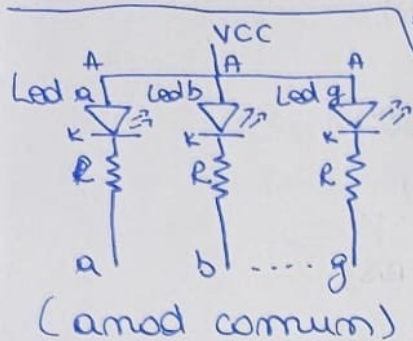 VCC
A A A
Led a Led b Led g
K K K
R R R
a b ..... g
(anod comun)